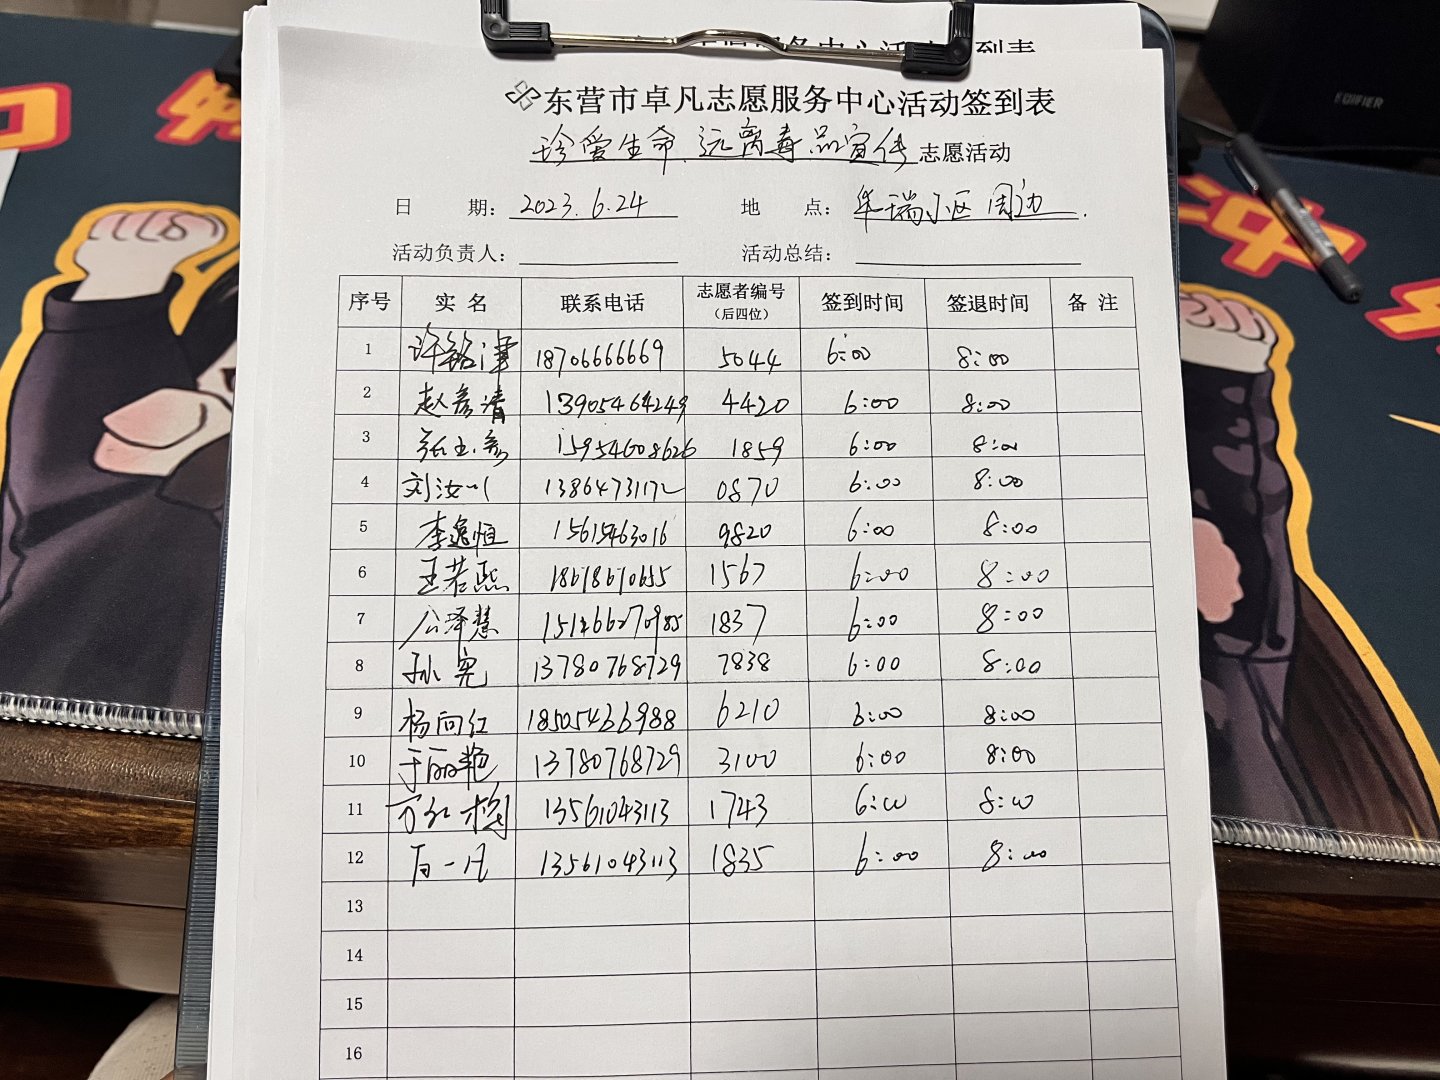 东营市卓凡志愿服务中心活动签到表
珍爱生命、远离毒品宣传志愿活动
日 期: 2023.6.24 地 点: 华瑞小区周边.
活动负责人: 活动总结:
序号 实名 联系电话 志愿者编号（后四位） 签到时间 签退时间 备注
1 许铭津 18706666669 5044 6:00 8:00
2 赵彦清 13905464249 4420 6:00 8:00
3 张玉彦 15954608626 1859 6:00 8:00
4 刘汝 13864731172 0870 6:00 8:00
5 李逸恒 15615463016 9820 6:00 8:00
6 王若熙 18678670655 1567 6:00 8:00
7 公泽慧 151466270985 1837 6:00 8:00
8 孙宪 13780768729 7838 6:00 8:00
9 杨向红 18505436988 6210 6:00 8:00
10 于丽艳 13780768729 3100 6:00 8:00
11 万红梅 13561043113 1743 6:00 8:00
12 一凡 13561043113 1835 6:00 8:00
13
14
15
16
EDIFIER